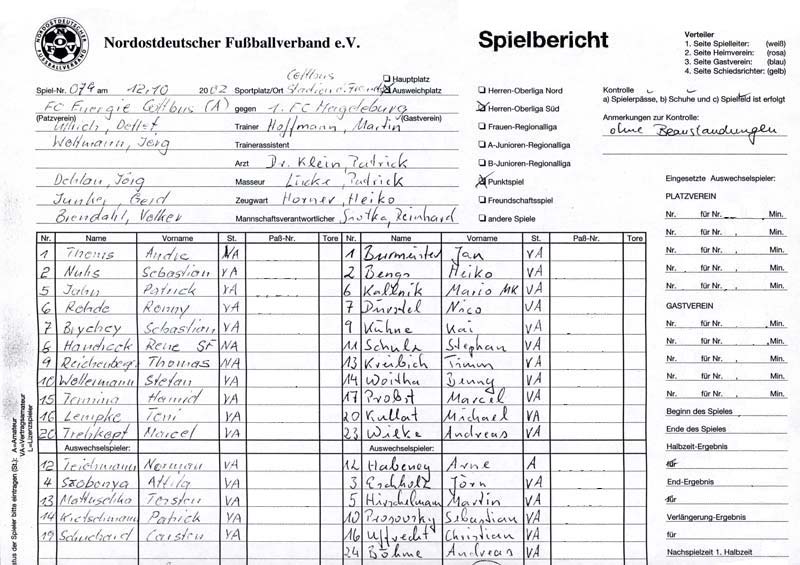 NORDOSTDEUTSCHER FUSSBALLVERBAND
NOFV
Nordostdeutscher Fußballverband e.V.
Spielbericht
Verteiler
1. Seite Spielleiter: (weiß)
2. Seite Heimverein: (rosa)
3. Seite Gastverein: (blau)
4. Seite Schiedsrichter: (gelb)
Spiel-Nr. 079 am 12.10 2002 Sportplatz/Ort Cottbus Stadion d. Freundsch.
Hauptplatz
Ausweichplatz
FC Energie Cottbus (A) gegen 1. FC Magdeburg
(Platzverein) (Gastverein)
Ullrich, Detlef Trainer Hoffmann, Martin
Woltmann, Jörg Trainerassistent
Arzt Dr. Klein, Patrick
Dehlau, Jörg Masseur Lücke, Patrick
Junker, Gerd Zeugwart Horner, Heiko
Brendahl, Volker Mannschaftsverantwortlicher Reinhard
Herren-Oberliga Nord
Herren-Oberliga Süd
Frauen-Regionalliga
A-Junioren-Regionalliga
B-Junioren-Regionalliga
Punktspiel
Freundschaftsspiel
andere Spiele
Kontrolle
a) Spielerpässe, b) Schuhe und c) Spielfeld ist erfolgt
Anmerkungen zur Kontrolle:
ohne Beanstandungen
Nr. Name Vorname St. Paß-Nr. Tore Nr. Name Vorname St. Paß-Nr. Tore
1 Thoms Andre VA 1 Burmeister Jan VA
2 Nuhs Sebastian VA 2 Bengs Heiko VA
5 Jahn Patrick VA 6 Kallnik Mario MK VA
6 Rohde Ronny VA 7 Dürstel Nico VA
7 Brychcy Sebastian VA 9 Kühne Kai VA
8 Handreck Rene SF NA 11 Schulz Stephan VA
9 Reichenberger Thomas NA 13 Kreibich Timm VA
10 Wollermann Stefan VA 14 Woitha Benny VA
15 Termina Hamid VA 17 Probst Marcel VA
16 Lempke Toni VA 20 Kullat Michael VA
20 Trehkopf Marcel VA 23 Wilke Andreas VA
Auswechselspieler: Auswechselspieler:
12 Teichmann Norman VA 12 Habeney Arne A
4 Szobonya Attila VA 3 Eschholz Jörn VA
13 Mattuschka Torsten VA 5 Hirschelmann Martin VA
14 Kretschmann Patrick VA 10 Pronovsky Sebastian VA
19 Schuchard Carsten VA 16 Uffrecht Christian VA
24 Böhme Andreas VA
Eingesetzte Auswechselspieler:
PLATZVEREIN
Nr. für Nr. Min.
Nr. für Nr. Min.
Nr. für Nr. Min.
Nr. für Nr. Min.
Nr. für Nr. Min.
GASTVEREIN
Nr. für Nr. Min.
Nr. für Nr. Min.
Nr. für Nr. Min.
Nr. für Nr. Min.
Nr. für Nr. Min.
Beginn des Spieles
Ende des Spieles
Halbzeit-Ergebnis
für
End-Ergebnis
für
Verlängerung-Ergebnis
für
Nachspielzeit 1. Halbzeit
status der Spieler bitte eintragen (St.): A=Amateur
VA=Vertragsamateur
L=Lizenzspieler